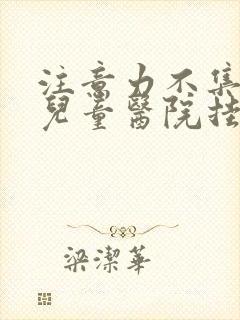 注意力不集
兒童醫院挂
梁潔華